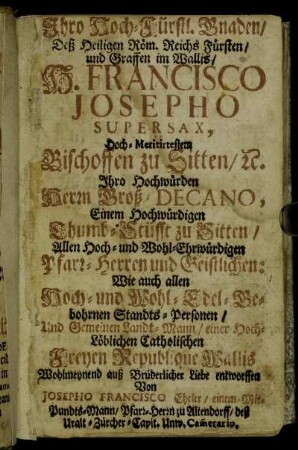 Ihro Hoch-Fürstl. Gnaden/
Deß Heiligen Röm. Reichs Fürsten/
und Graffen im Wallis/
H. FRANCISCO
JOSEPHO
SUPERSAX,
Hoch-Meritirtestem
Bischoffen zu Sitten/ ꝛc.
Ihro Hochwürden
Herrn Groß-DECANO,
Einem Hochwürdigen
Thumb-Stüfft zu Sitten/
Allen Hoch- und Wohl-Ehrwürdigen
Pfarr-Herren und Geistlichen:
Wie auch allen
Hoch- und Wohl-Edel-Ge-
bohrnen Standts-Personen/
Und Gemeinen Landt-Mann/ einer Hoch-
Löblichen Catholischen
Freyen Republique Wallis
Wohlmeynend auß Brüderlicher Liebe entworffen
Von
JOSEPHO FRANCISCO Ehrler/ einem Mit-
Pundts-Mann/ Pfarr-Herrn zu Altendorff/ deß
Uralt-Zürcher-Capit. Unw. Camerario.